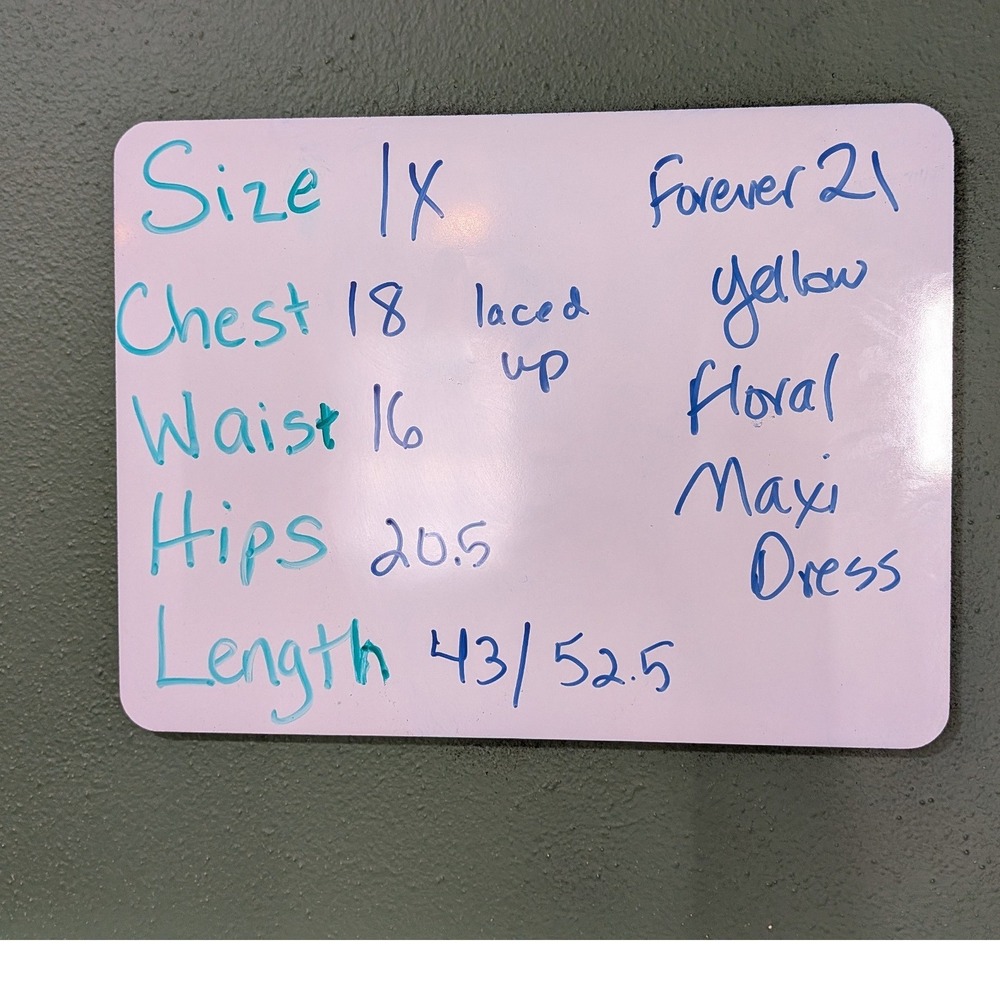 Size 1X
Chest 18 laced
up
Waist 16
Hips 20.5
Length 43/52.5
Forever 21
yellow
floral
Maxi
Dress